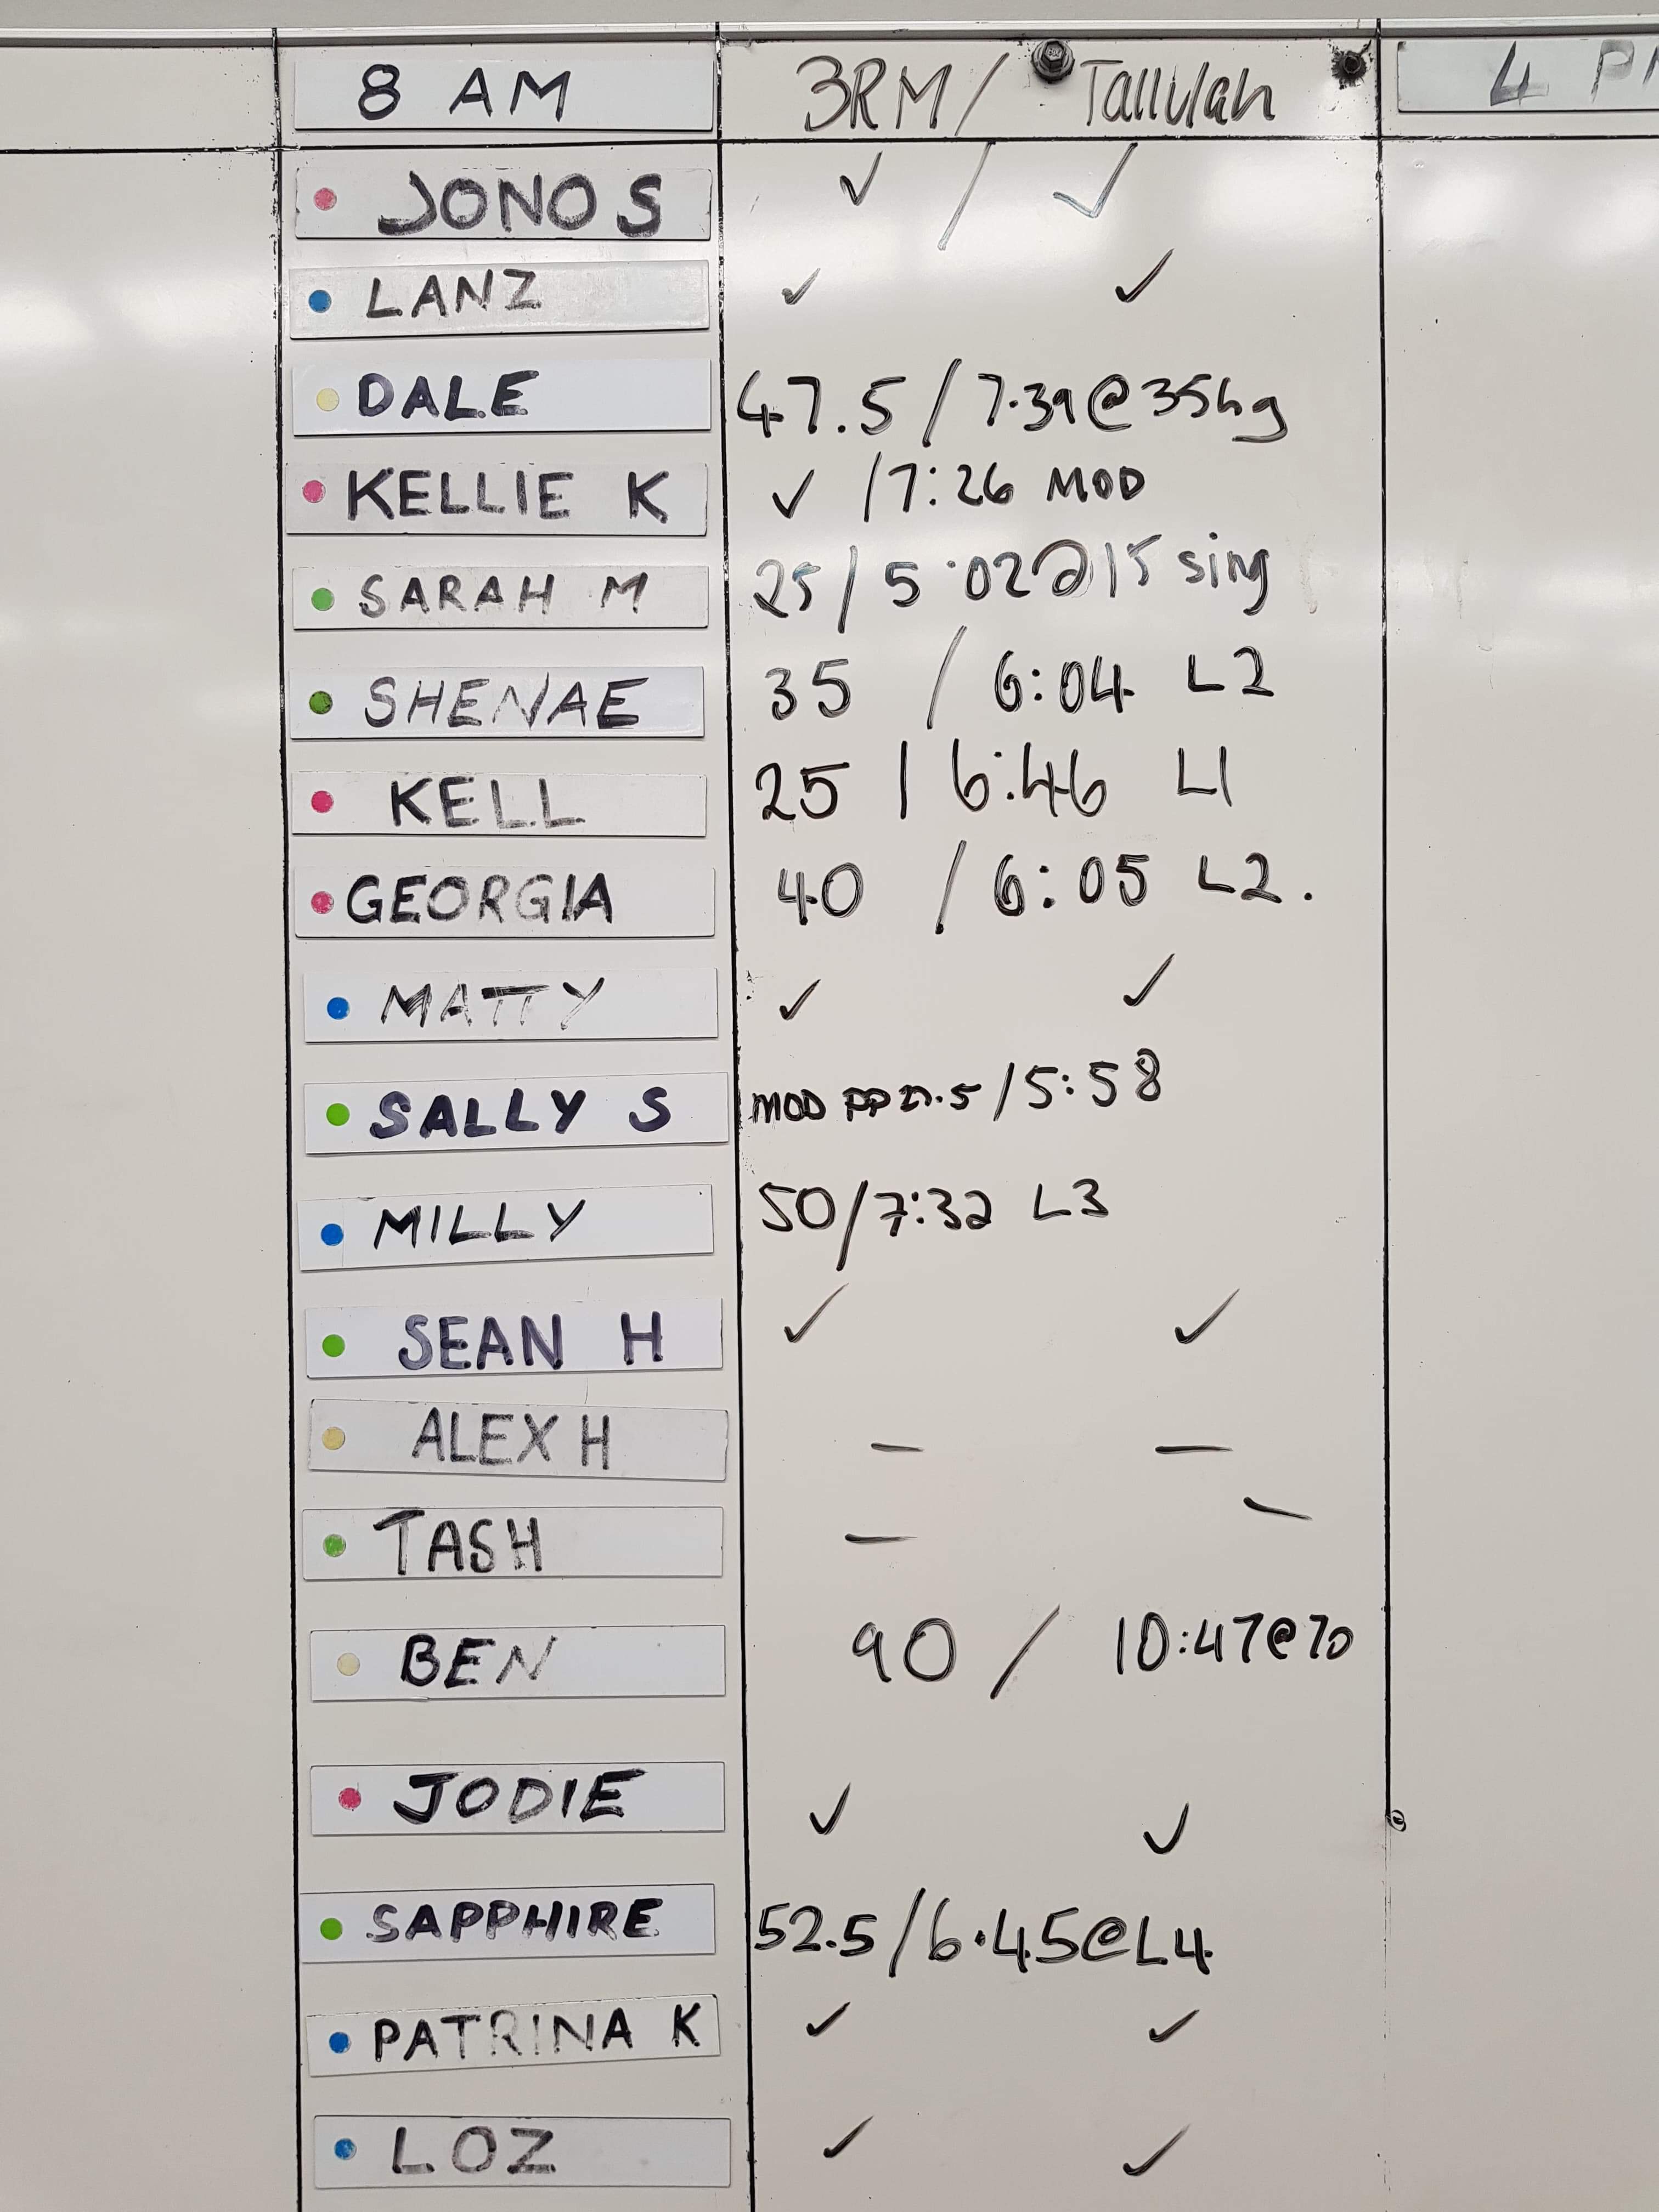 8 AM 3RM / Tallulah 4 P
JONO S ✓ / ✓
LANZ ✓ ✓
DALE 47.5 / 7.39 @ 35kg
KELLIE K ✓ / 7:26 MOD
SARAH M 25 / 5:02 @ 15 sing
SHENAE 35 / 6:04 L2
KELL 25 | 6:46 L1
GEORGIA 40 / 6:05 L2.
MATTY ✓ ✓
SALLY S MOD PP / 5:58
MILLY 50 / 7:32 L3
SEAN H ✓ ✓
ALEX H — —
TASH — —
BEN 90 / 10:47@70
JODIE ✓ ✓
SAPPHIRE 52.5 / 6.45@L4
PATRINA K ✓ ✓
LOZ ✓ ✓